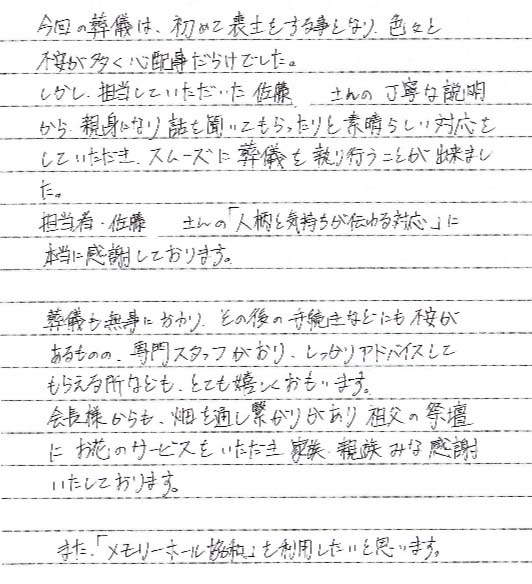 今回の葬儀は、初めて喪主をする事となり、色々と
不安が多く心配事だらけでした。
しかし、担当していただいた佐藤 さんの丁寧な説明
から、親身になり話を聞いてもらったりと素晴らしい対応を
していただき、スムーズに葬儀を執り行うことが出来まし
た。
担当者・佐藤 さんの「人柄と気持ちが伝わる対応」に
本当に感謝しております。
葬儀も無事に終わり、その後の手続きなどにも不安が
あるものの、専門スタッフがおり、しっかりアドバイスして
もらえる所なども、とても嬉しくおもいます。
会長様からも、畑を通し繋がりがあり祖父の祭壇
にお花のサービスをいただき家族、親族みな感謝
いたしております。
また、「メモリーホール協和」を利用したいと思います。